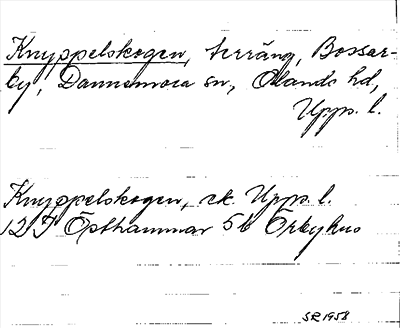 Knyppelskogen, terräng, Bossar-
by, Dannemora sn, Olands hd,
Upps. l.
Knyppelskogen, ek. Upps. l.
12 I Östhammar 5b Örbyhus
SR 1958